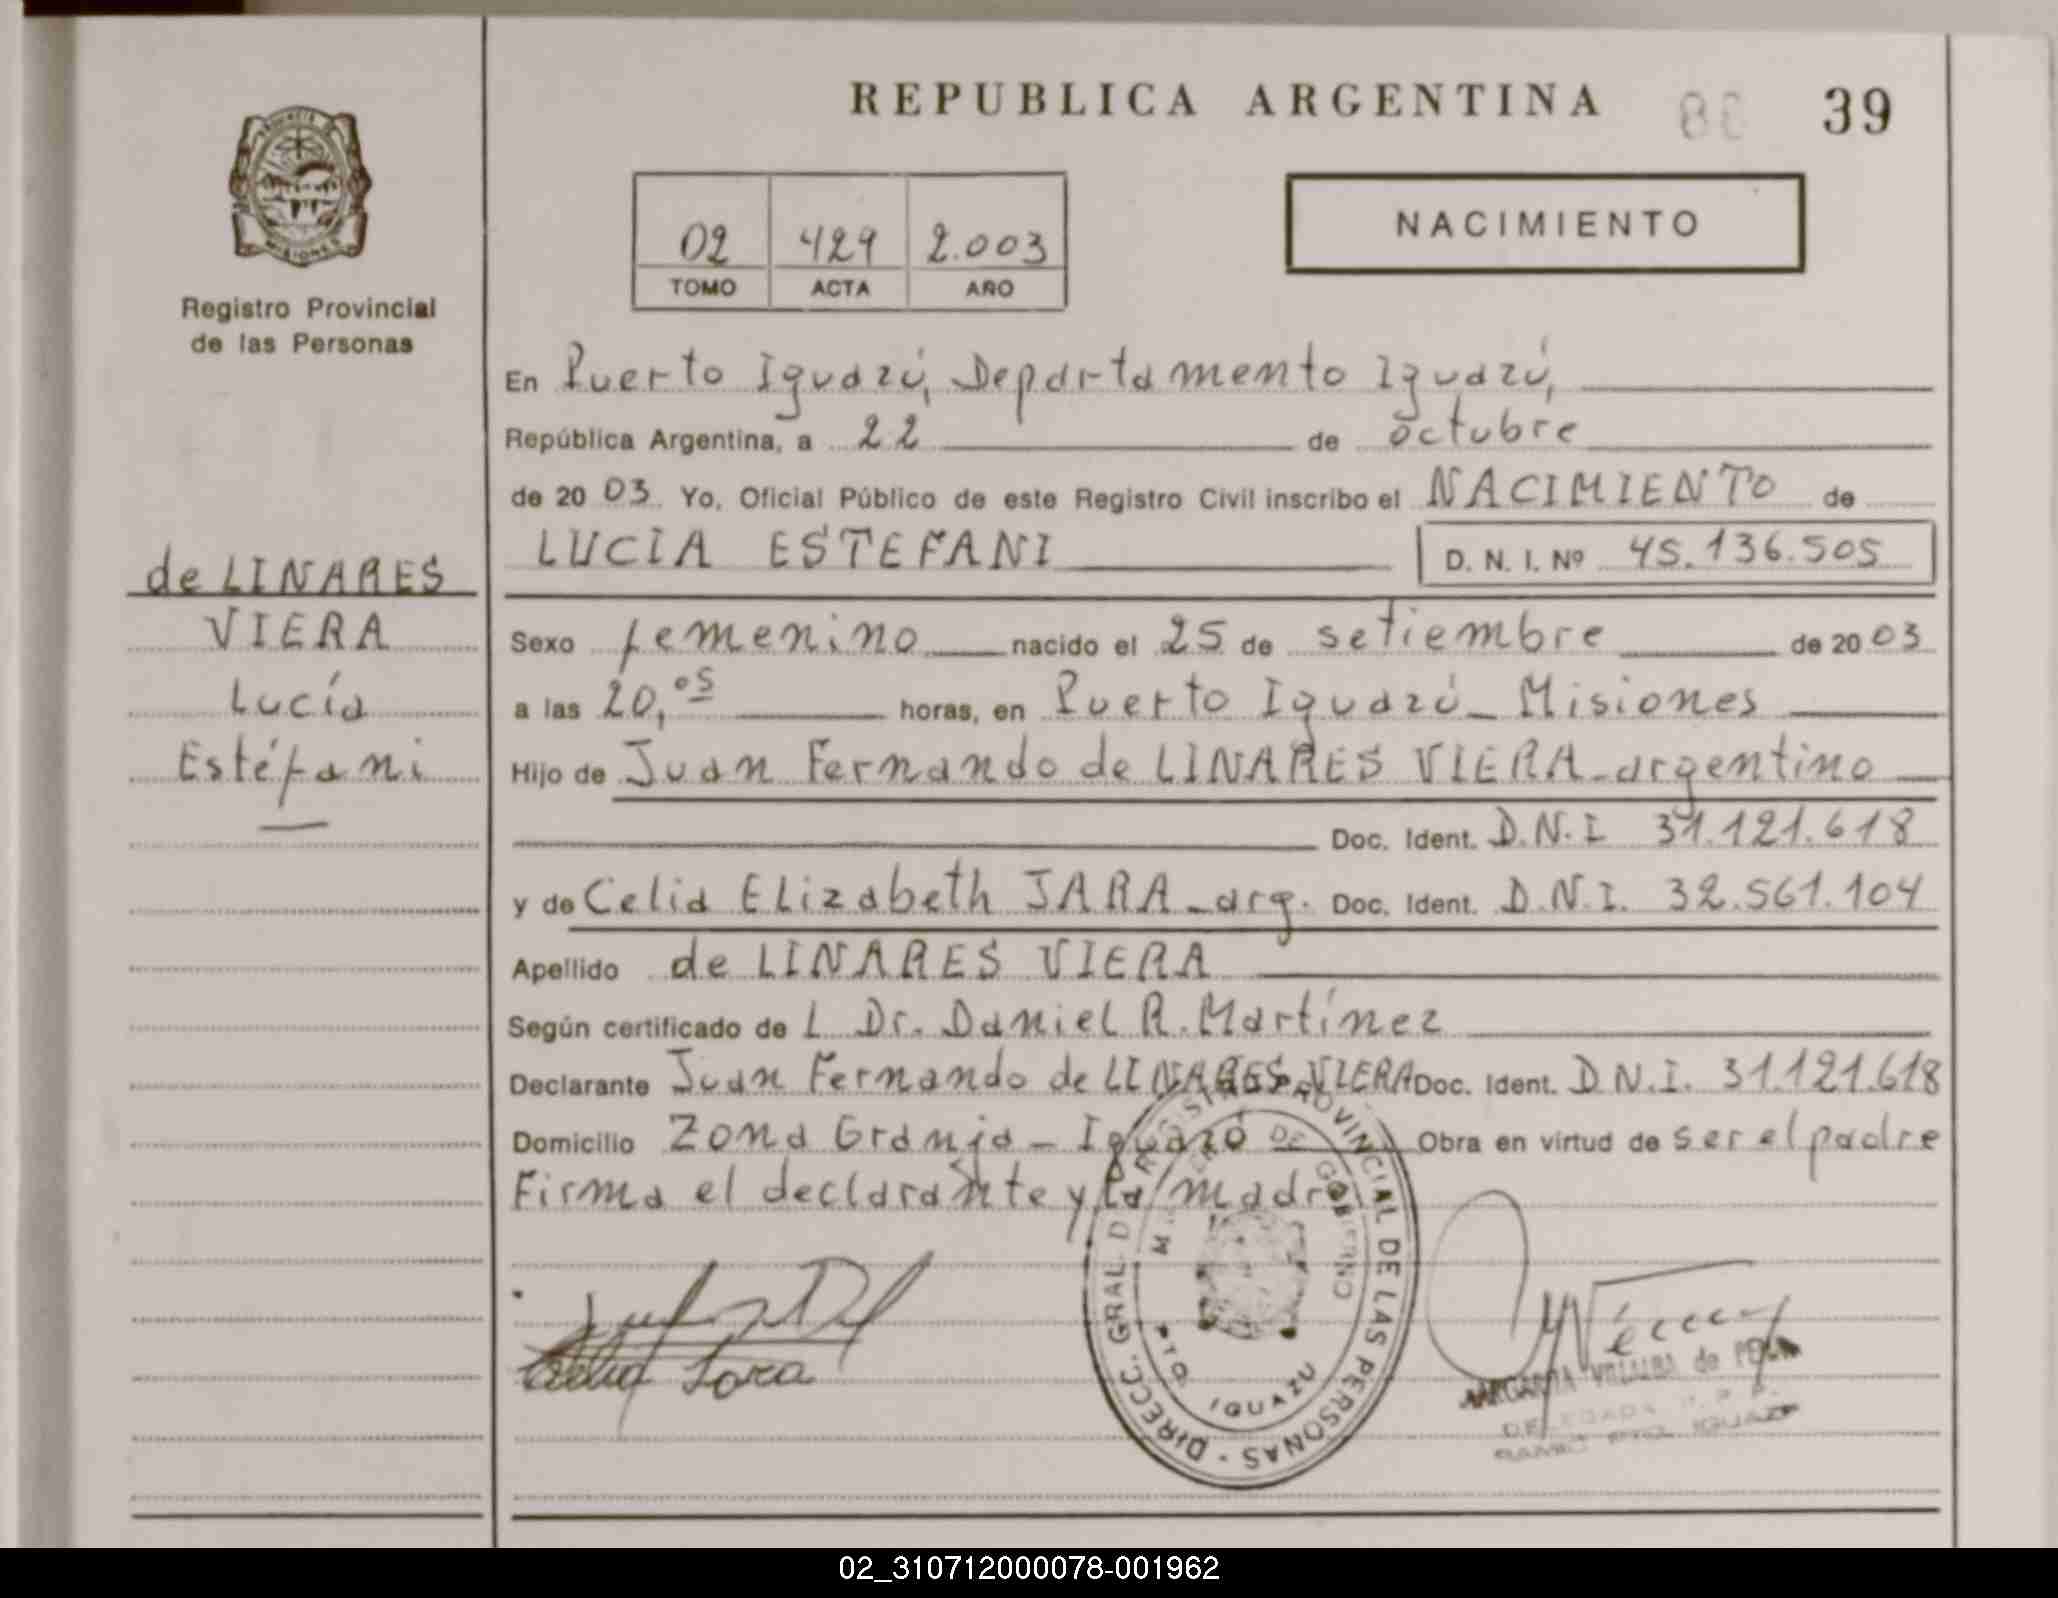 REPUBLICA ARGENTINA 39
NACIMIENTO
02 429 2.003
TOMO ACTA AÑO
PROVINCIA DE MISIONES
Registro Provincial
de las Personas
de LINARES
VIERA
Lucía
Estéfani
En Puerto Iguazú, Departamento Iguazú,
República Argentina, a 22 de octubre
de 20 03 Yo, Oficial Público de este Registro Civil inscribo el NACIMIENTO de
LUCIA ESTEFANI D. N. I. Nº 45.136.505
Sexo femenino nacido el 25 de setiembre de 20 03
a las 20,05 horas, en Puerto Iguazú_ Misiones
Hijo de Juan Fernando de LINARES VIERA_argentino
Doc. Ident. D.N.I 31.121.618
y de Celia Elizabeth JARA_arg. Doc. Ident. D.N.I. 32.561.104
Apellido de LINARES VIERA
Según certificado de L Dr. Daniel R. Martínez
Declarante Juan Fernando de LINARES VIERA Doc. Ident. D N.I. 31.121.618
Domicilio Zona Granja _ Iguazú Obra en virtud de ser el padre
Firma el declarante y la madre
DIRECC. GRAL. DE REGISTRO PROVINCIAL DE LAS PERSONAS -
DE GOBIERNO
PTO. IGUAZU
Celia Jara
MARGARITA VILLALBA de PEÑA
DELEGADA R. P. P.
PTO. IGUAZU
02_310712000078-001962